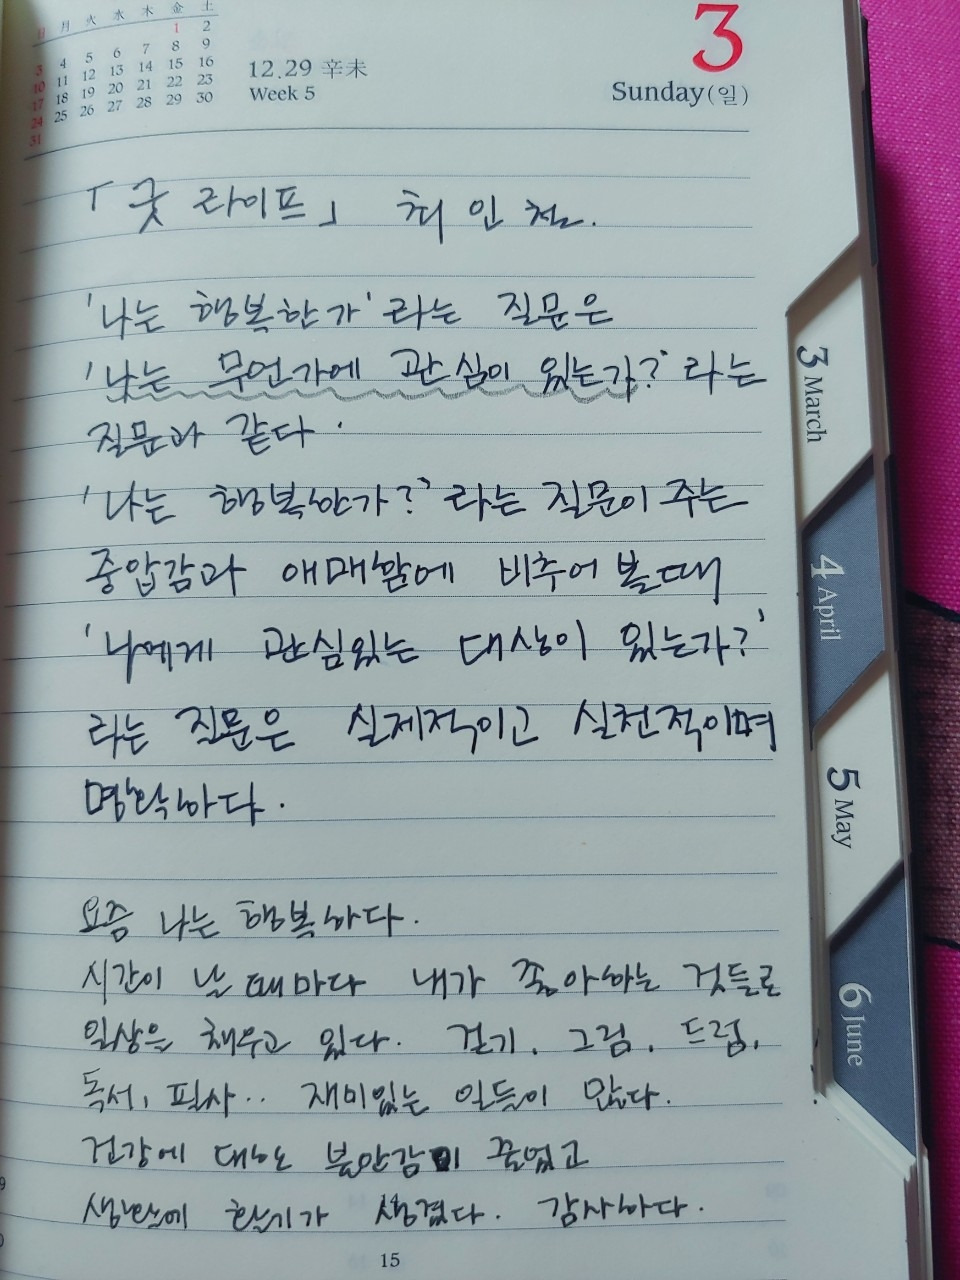 日 月 火 水 木 金 土
1 2
3 4 5 6 7 8 9
10 11 12 13 14 15 16
17 18 19 20 21 22 23
24 25 26 27 28 29 30
31
12.29 辛未
Week 5
3
Sunday(일)
「굿 라이프」 최인철.
'나는 행복한가'라는 질문은
'나는 무언가에 관심이 있는가?'라는
질문과 같다.
'나는 행복한가?'라는 질문이 주는
중압감과 애매함에 비추어 볼때
'나에게 관심있는 대상이 있는가?'
라는 질문은 실제적이고 실천적이며
명확하다.
요즘 나는 행복하다.
시간이 날 때마다 내가 좋아하는 것들로
일상을 채우고 있다. 걷기, 그림, 드럼,
독서, 필사.. 재미있는 일들이 많다.
건강에 대한 불안감이 줄었고
생활에 활기가 생겼다. 감사하다.
15
3 March
4 April
5 May
6 June